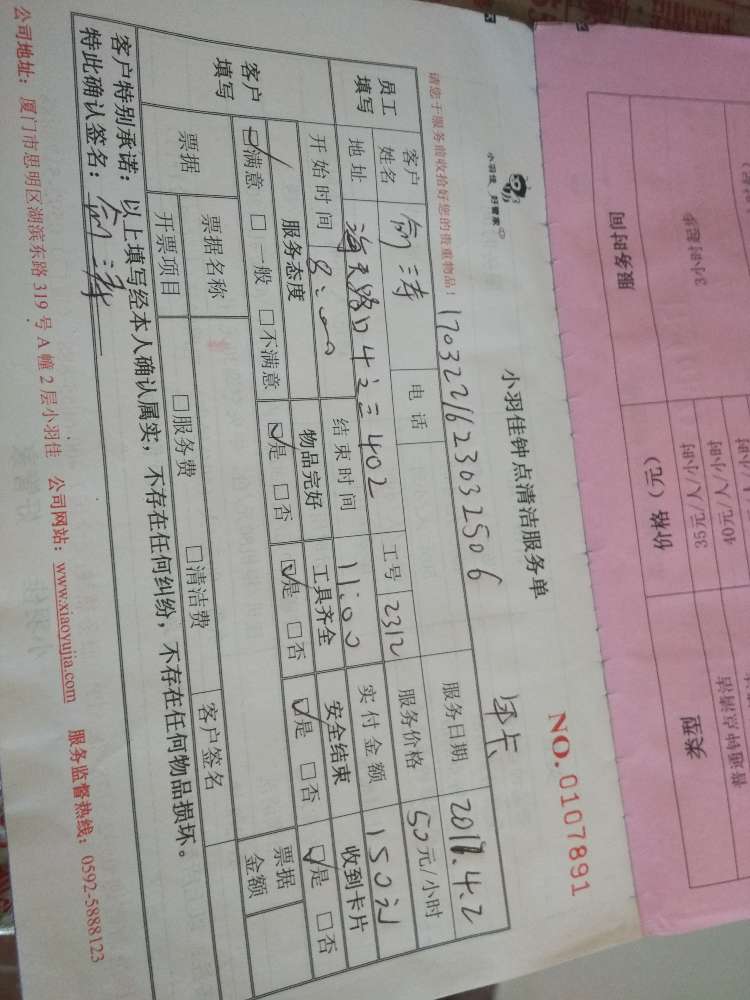 小羽佳 好管家
小羽佳钟点清洁服务单
NO. 0107891
请您于服务前收拾好您的贵重物品！
1703221623032506
员工填写
客户姓名
电话
工号 2312
服务日期 2017.4.2
地址
402
服务价格 50元/小时
开始时间 8:00
结束时间 11:00
实付金额 150
客户填写
服务态度
物品完好
工具齐全
安全结束
收到卡片
☑满意 □一般 □不满意
☑是 □否
☑是 □否
☑是 □否
☑是 □否
票据
票据名称
□服务费
□清洁费
客户签名
票据金额
开票项目
客户特别承诺：以上填写经本人确认属实，不存在任何纠纷，不存在任何物品损坏。
特此确认签名：
公司地址：厦门市思明区湖滨东路 319 号 A 幢 2 层小羽佳 公司网站：www.xiaoyujia.com 服务监督热线：0592-5888123
服务时间
价格（元）
类型
3小时起步
35元/人/小时
普通钟点清洁
40元/人/小时